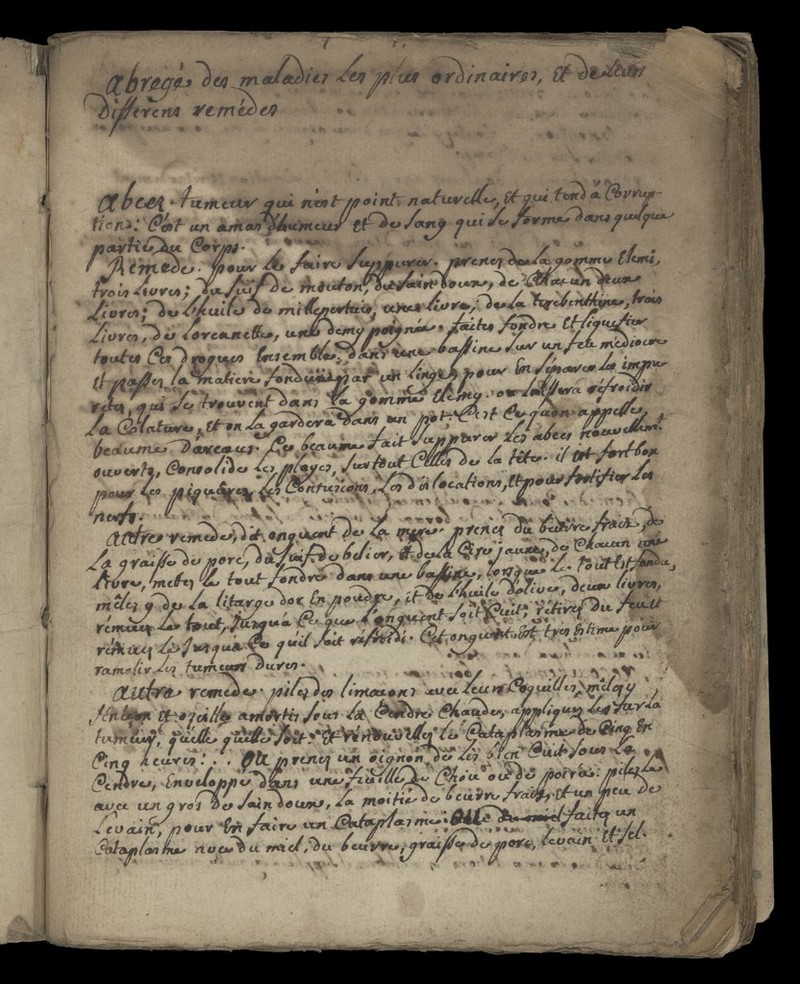 abregé des maladies les plus ordinaires, et de leurs
differens remédes
abcez. tumeur qui n'est point naturelle, et qui tend à Corrup-
tion: C'est un amas d'humeur et de sang qui se forme dans quelque
partie du Corps.
Reméde. pour le faire suppurer. prenez de la gomme Elemi,
trois livres; du suif de mouton, du sain doux, de Chacun deux
Livres; de l'huile de millepertuis, une livre, de la terebenthine, trois
Livres, de lorcanette, une demy poignée. faites fondre et liquefier
toutes Ces drogues Ensemble, dans une bassine sur un feu mediocre
et passez la matiere fondüe par un linge, pour En séparer les impu
retez, qui se trouvent dans la gomme Elemy. on laissera refroidir
La Colature, et on la gardera dans un pot. C'est Ce qu'on appelle
beaume Darceus. Ce beaume fait suppurer les abces nouvellemt.
ouverts, Consolide les playes, surtout Celles de la tête. il est fort bon
pour les piquûres, les Contusions, les dislocations, et pour fortifier les
nerfs.
autre remede, dit onguent de la mere. prenez du beurre frais, de
La graisse de porc, du suif de belier, et de la Cire jaune, de Chacun une
livre, metez le tout fondre dans une bassine, lorsque le tout est fondu,
mêlez y de la litarge dor En poudre, et de l'huile dolive, deux livres,
rémuez le tout, jusqu'a Ce que l'onguent soit Cuit, rétirez du feu et
rémuez le jusqu'a Ce qu'il soit refroidi. Cet onguent est tres Estimé pour
ramolir les tumeurs dures.
autre remede. pilez des limaçons avec leurs Coquilles, mélez y
et ozeille amortis sous la Cendre Chaude, appliquez les sur la
tumeur, quelle qu'elle soit. et renouvellez le Cataplasme de Cinq En
Cinq heures: . . ou prenez un oignon de lis bien Cuit sous la
Cendre, Enveloppé dans une fuille de Chou ou de poirée: pilez le
avec un gros de sain doux, la moitié de beurre frais, et un peu de
Levain, pour En faire un Cataplasme. faites un
Cataplasme avec du miel, du beurre, graisse de porc, levain et sel.